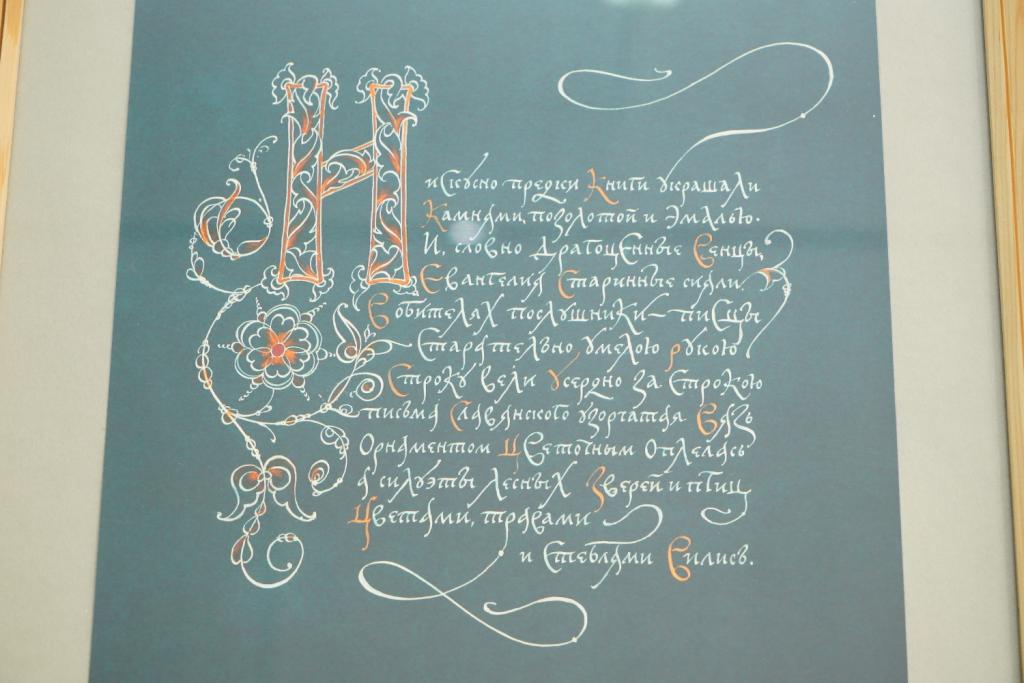 И искусно предки книги украшали
Камнями, позолотой и эмалью.
И, словно драгоценные венцы,
Евангелия старинные сияли.
В обителях послушники – писцы
Старательно, умелою рукою
Строку вели усердно за строкою
письма славянского узорчатая вязь
Орнаментом цветочным оплелась
а силуэты лесных зверей и птиц
Цветами, травами
и стеблями вились.